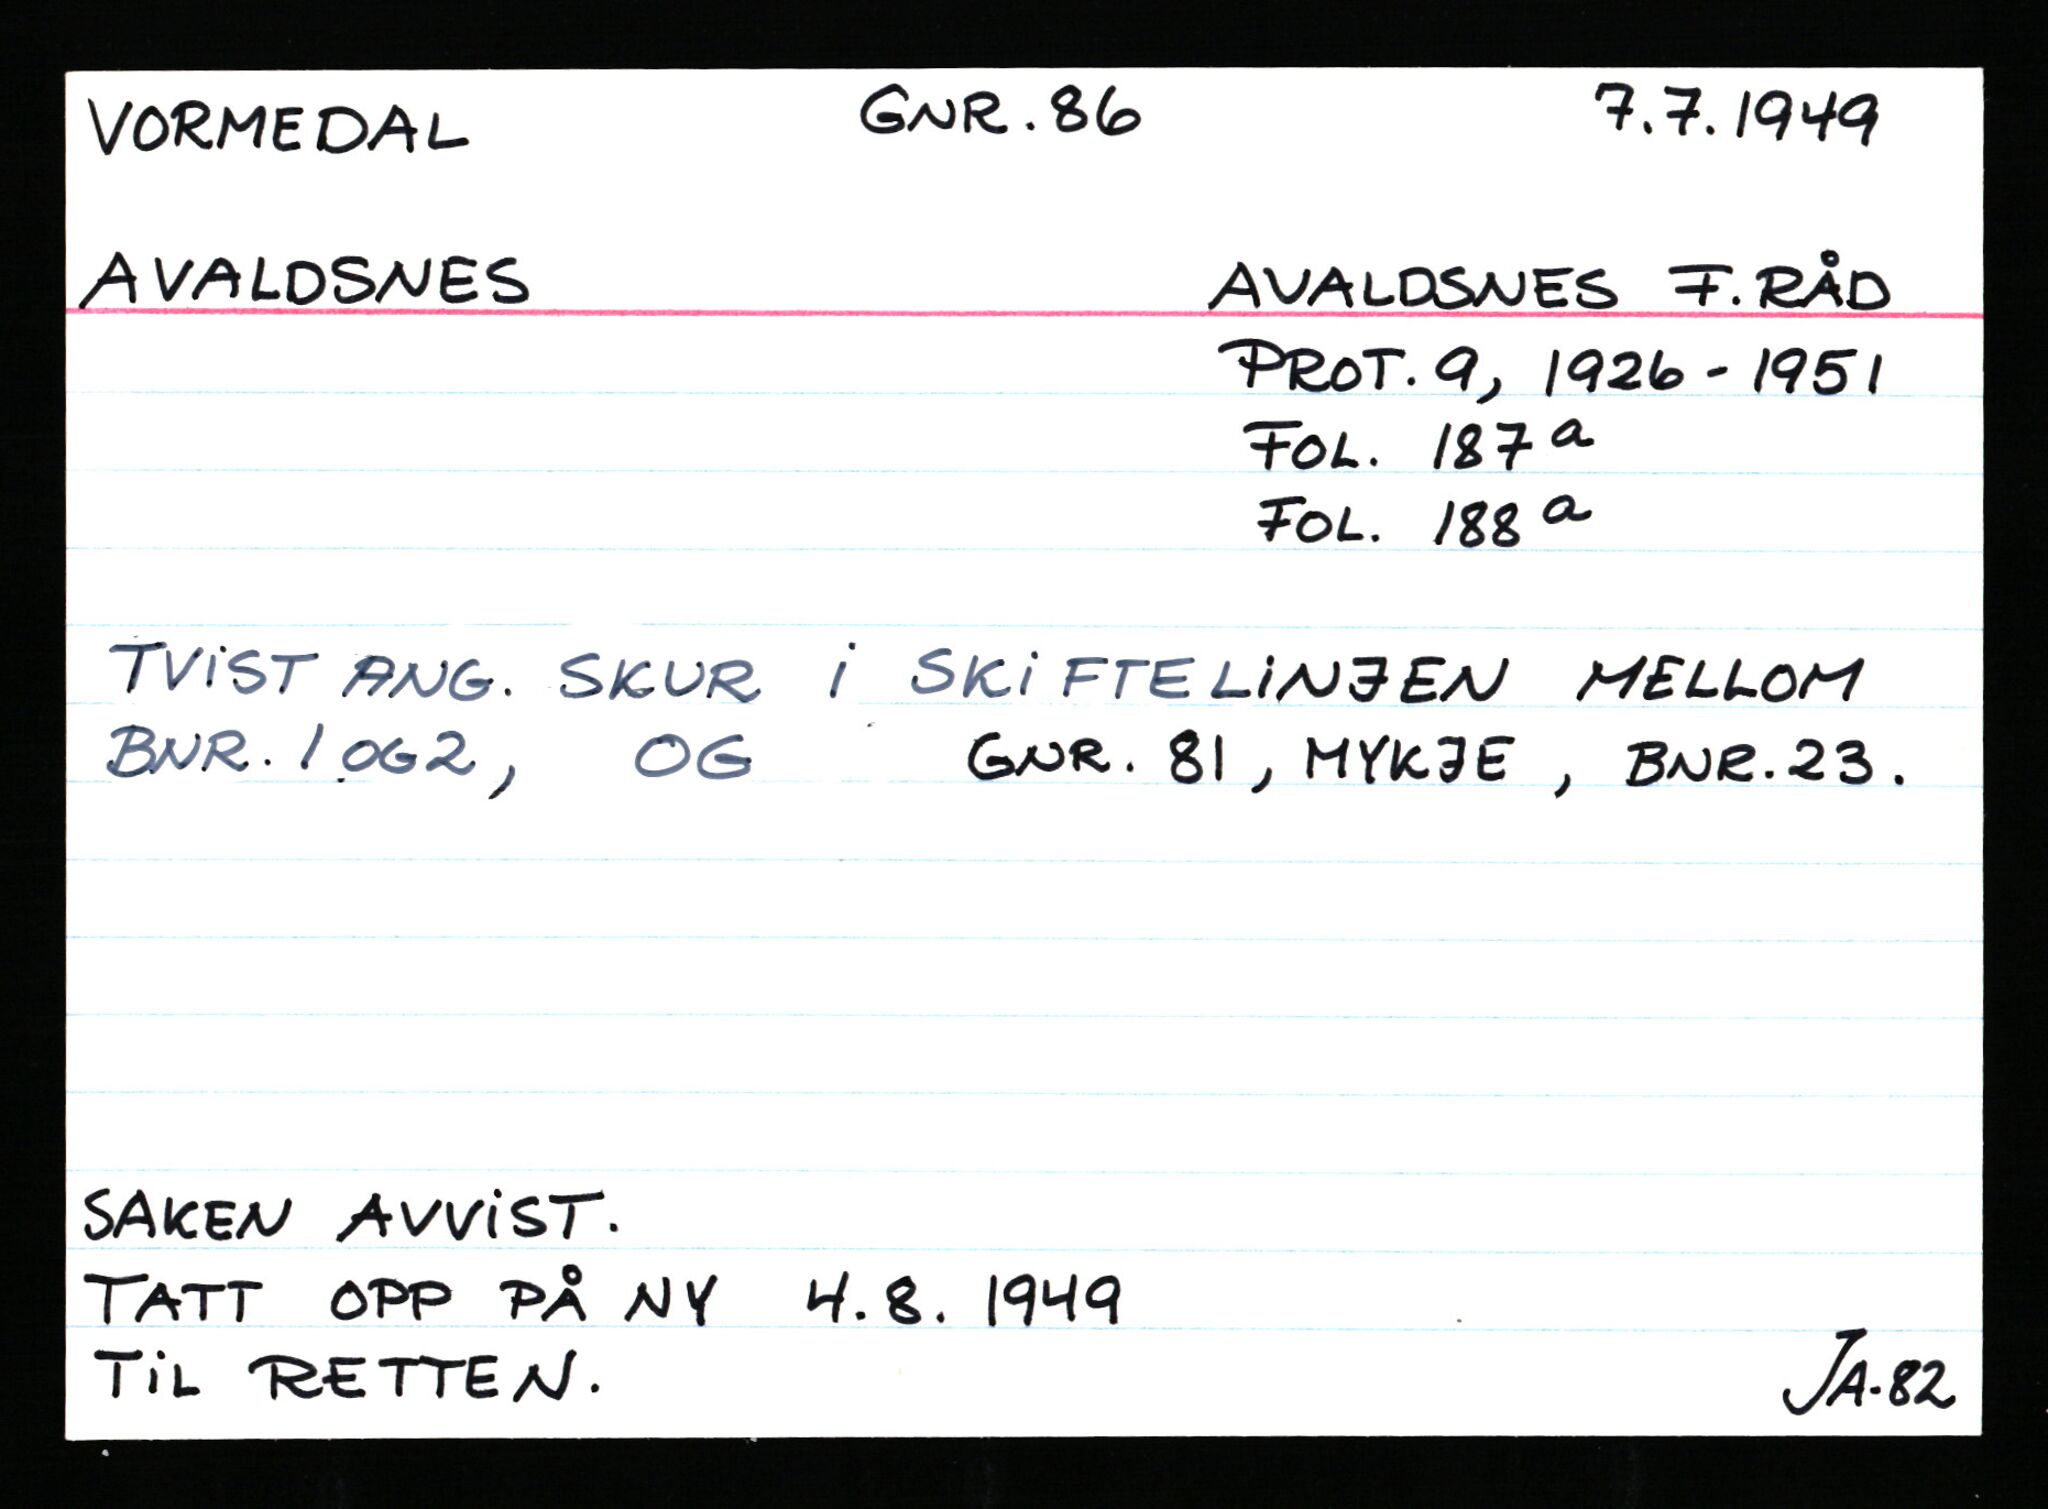 VORMEDAL GNR. 86 7.7.1949
AVALDSNES AVALDSNES F. RÅD
PROT. 9, 1926-1951
FOL. 187 a
FOL. 188 a
TVIST ANG. SKUR I SKIFTELINJEN MELLOM
BNR. 1 OG 2, OG GNR. 81, MYKJE, BNR. 23.
SAKEN AVVIST.
TATT OPP PÅ NY 4.8. 1949
TIL RETTEN.
JA-82